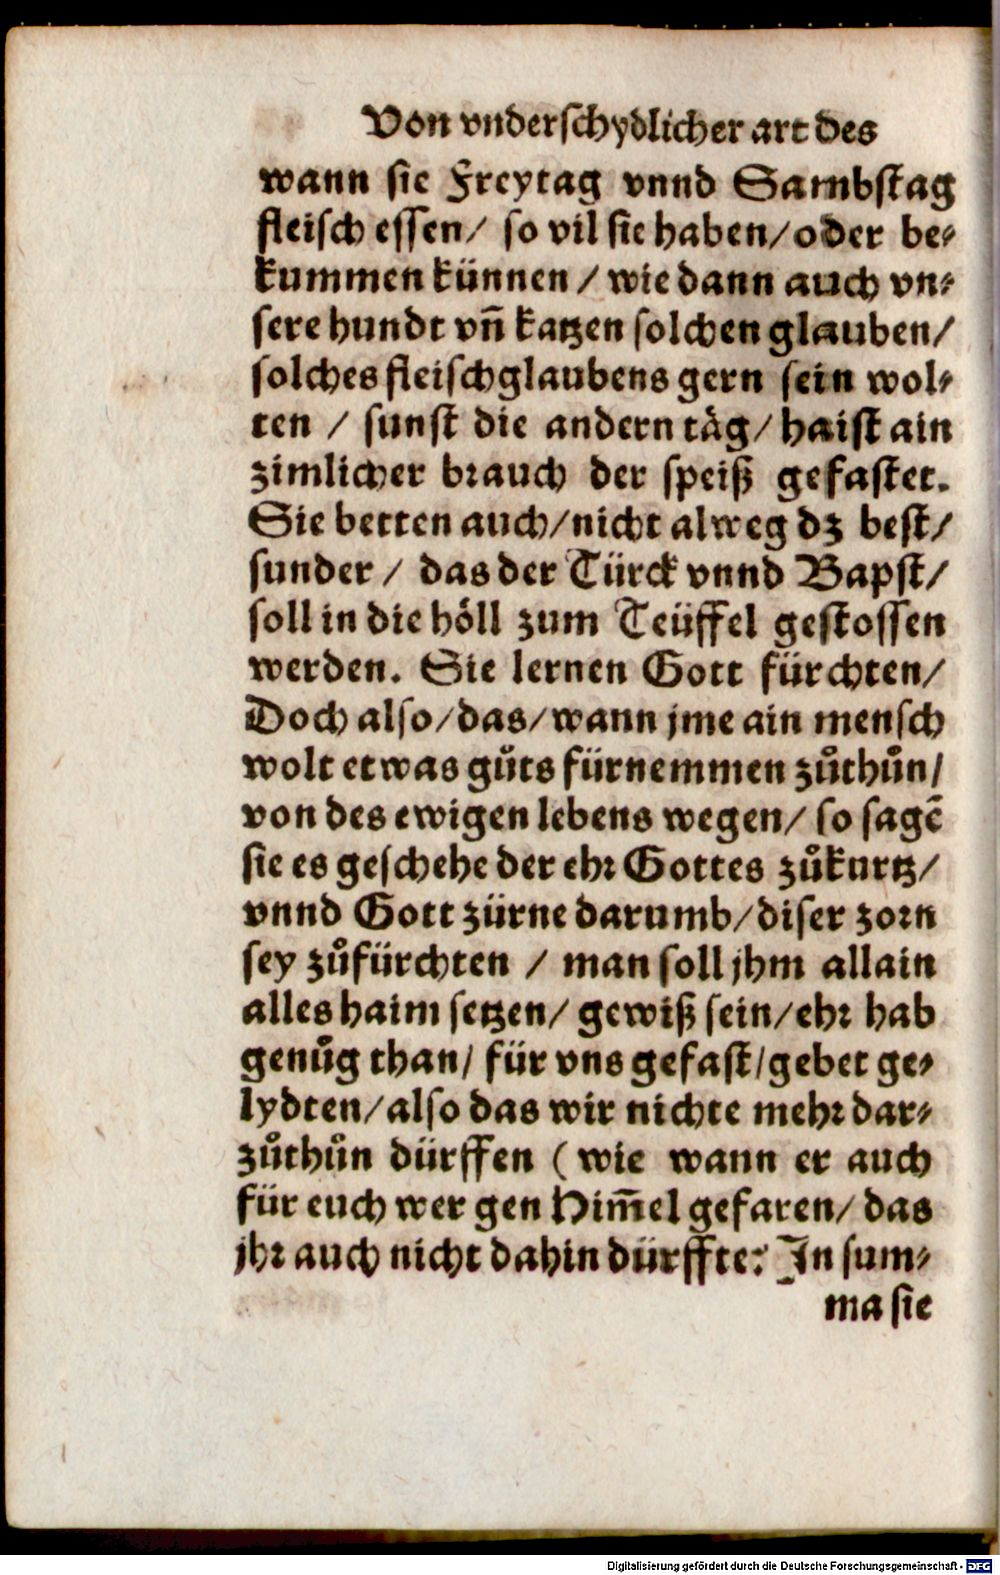 Von vnderschydlicher art des
wann sie Freytag vnnd Sambstag
fleisch essen/ so vil sie haben/ oder be⸗
kummen künnen / wie dann auch vn⸗
sere hundt vñ katzen solchen glauben/
solches fleischglaubens gern sein wol⸗
ten / sunst die andern täg/ haist ain
zimlicher brauch der speiß gefastet.
Sie betten auch/ nicht alweg dz best/
sunder / das der Türck vnnd Bapst/
soll in die höll zum Teüffel gestossen
werden. Sie lernen Gott fürchten/
Doch also/ das/ wann jme ain mensch
wolt etwas gůts fürnemmen zůthůn/
von des ewigen lebens wegen/ so sagẽ
sie es geschehe der ehr Gottes zůkurtz/
vnnd Gott zürne darumb/ diser zorn
sey zůfürchten / man soll jhm allain
alles haim setzen/ gewiß sein/ ehr hab
genůg than/ für vns gefast/ gebet ge⸗
lydten/ also das wir nichte mehr dar⸗
zůthůn dürffen (wie wann er auch
für euch wer gen Him̃el gefaren/ das
jhr auch nicht dahin dürffte: In sum⸗
ma sie
Digitalisierung gefördert durch die Deutsche Forschungsgemeinschaft - DFG